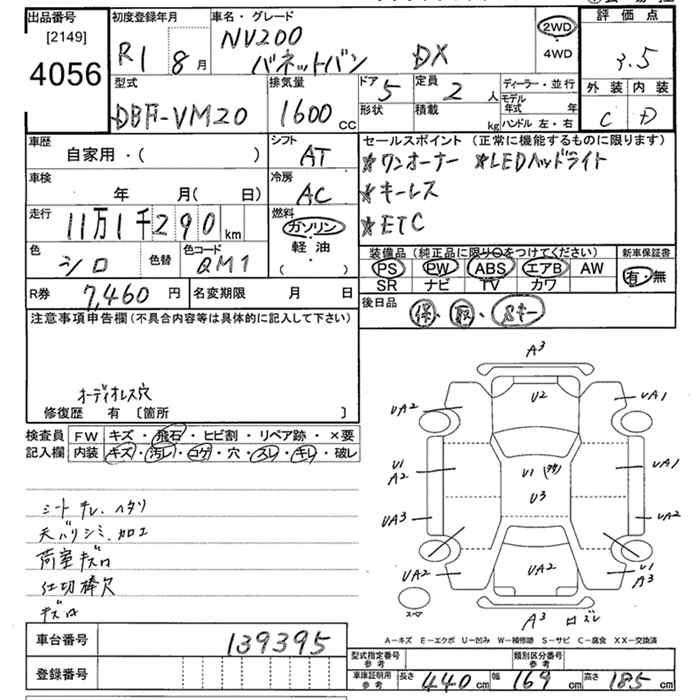 出品番号
[2149]
4056
初度登録年月
R1 8月
車名・グレード
NV200
バネットバン DX
2WD
・
4WD
評価点
3.5
外装 内装
C D
型式
DBF-VM20
排気量
1600 cc
ドア 5
形状
定員 2 人
積載 kg
ディーラー・並行
モデル年式 年
ハンドル 左・右
車歴
自家用・( )
シフト
AT
車検
年 月( 日)
冷房
AC
走行
11万1千290 km
燃料
ガソリン
・
軽油
( ・ )
色
シロ
色替
色コード
QM1
R券 7,460 円
名変期限 月 日
セールスポイント (正常に機能するものに限ります)
★ワンオーナー ★LEDヘッドライト
★キーレス
★ETC
装備品 (純正品に限り○をつけてください)
PS PW ABS エアB AW
SR ナビ TV カワ
新車保証書
有・無
後日品
保・取・スキー
注意事項申告欄 (不具合内容等は具体的に記入して下さい)
オーディオレス穴
修復歴 有 〔箇所 〕
検査員記入欄
FW キズ・飛石・ヒビ割・リペア跡・×要
内装 キズ・汚レ・コゲ・穴・スレ・キレ・破レ
シート チレ、ヘタリ
天バリシミ、加工
荷室キズロ
仕切棒欠
キズロ
A3
UA2
U2
UA1
U1
A2
U1
U3
UA1
UA3
UA2
UA2
UA2
U1
A3
A3 ロズレ
A-キズ E-エクボ U-凹み W-補修跡 S-サビ C-腐食 XX-交換済
車台番号 139395
登録番号
型式指定番号
参考
類別区分番号
参考
車庫証明用
参考
長さ 440 cm 幅 169 cm 高さ 185 cm